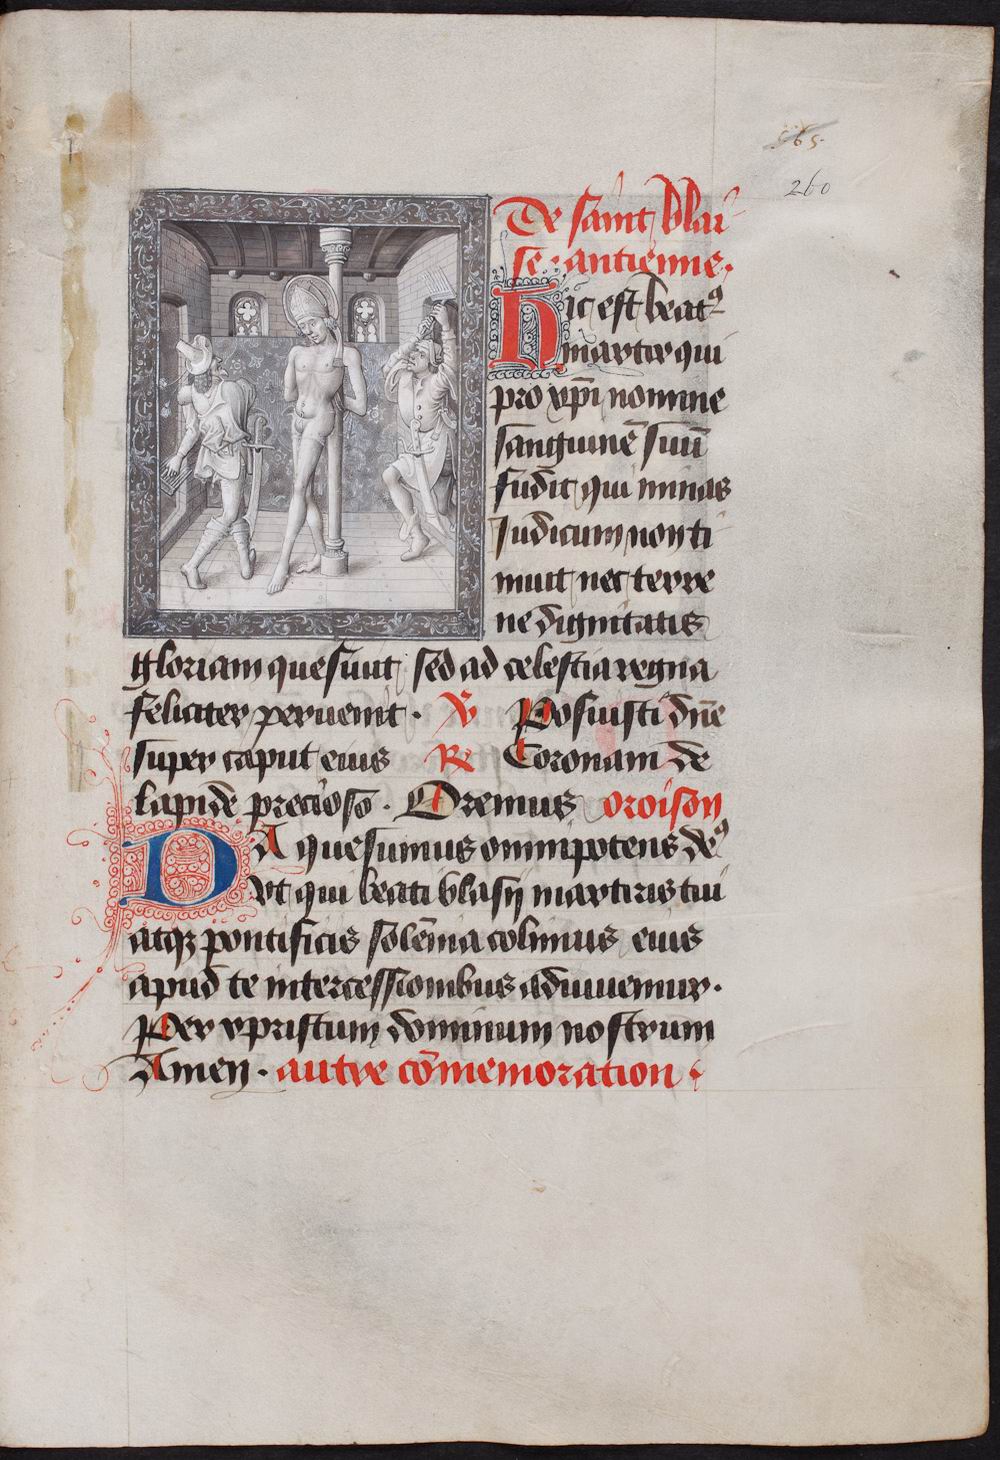 565.
260
De saint blai
se antienne.
Hic est beatꝰ
martir qui
pro xp̄i nomine
sanguinē suū
fudit qui minas
Iudicum non ti
muit nec terre
ne dignitatis
gloriam quesiuit sed ad celestia regna
feliciter peruenit. ℣ Posuisti dn̄e
super caput eius ℟ Coronam de
lapide precioso. Oremus oroison
DA quesumus omnipotens deꝰ
vt qui beati blasij martiris tui
atqꝫ pontificis solēnia colimus eius
apud te intercessionibus adiuuemur.
Per xpristum dominum nostrum
Amen. autre cōmemoration